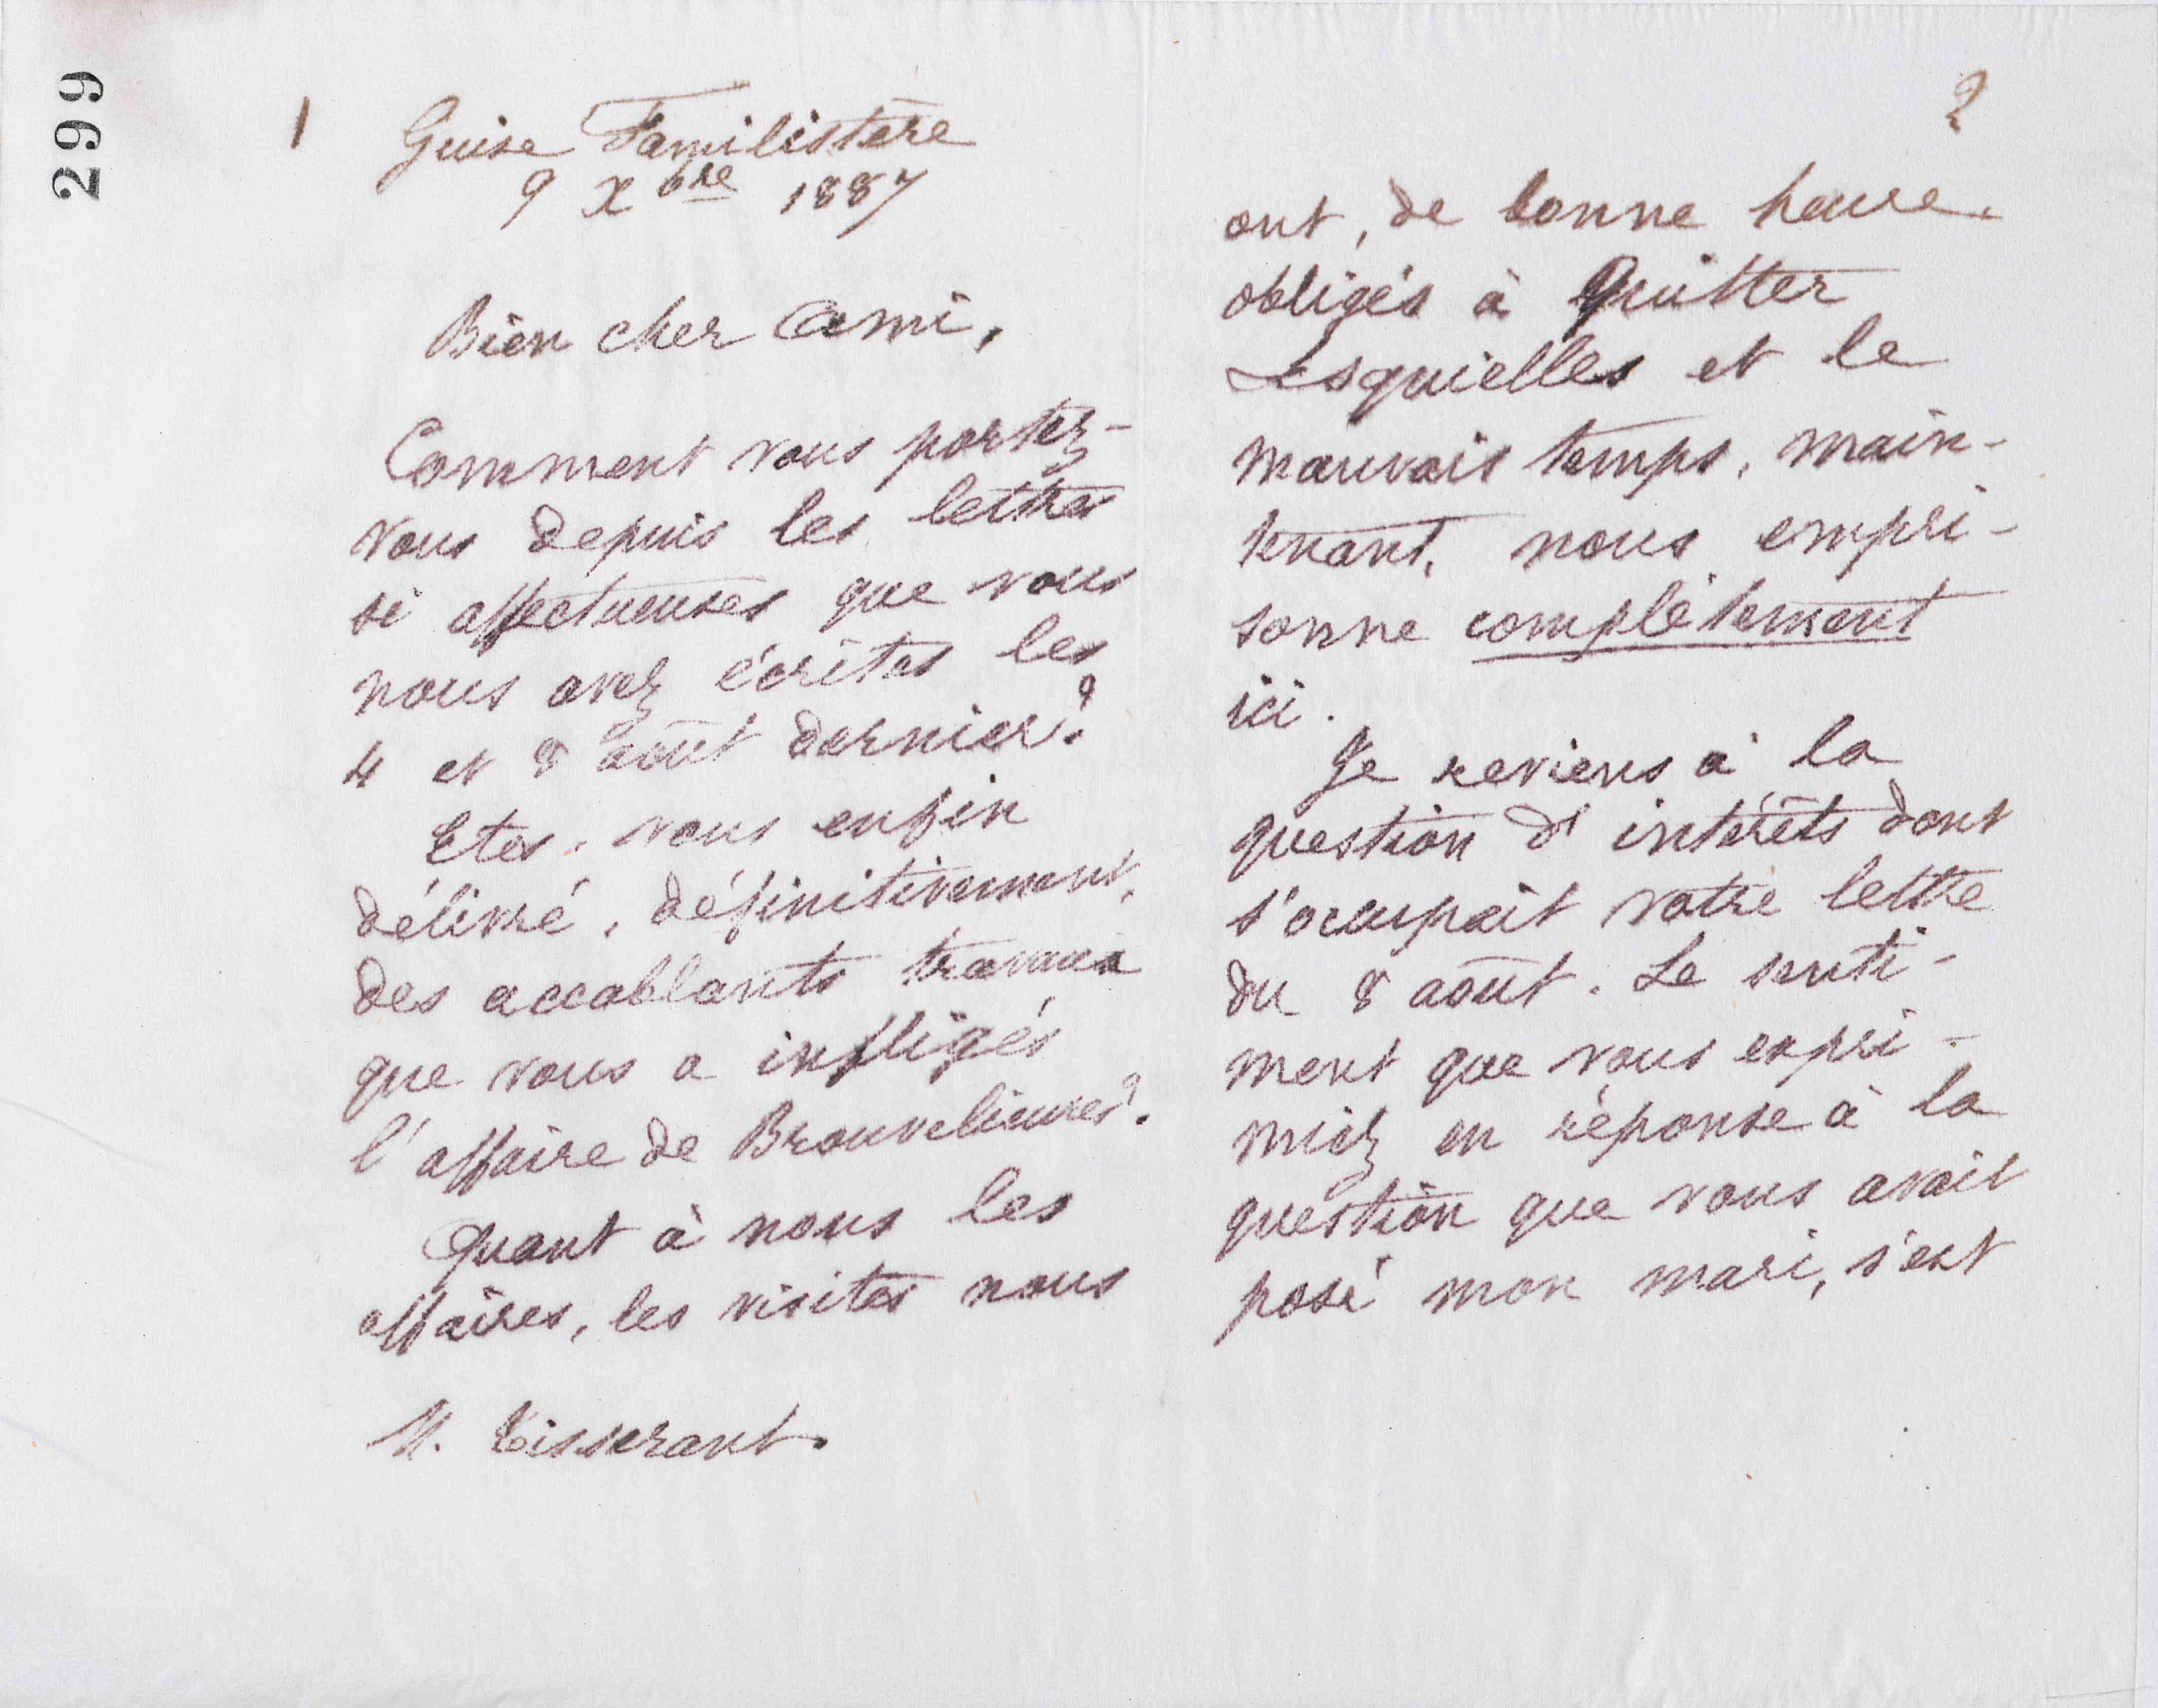 299
1
Guise Familistère
9 Xbre 1887
Bien cher Ami,
Comment vous portez-
vous depuis les lettres
si affectueuses que vous
nous avez écrites les
4 et 8 août dernier?
Etes-vous enfin
délivré, définitivement,
des accablants travaux
que vous a infligés
l'affaire de Brouvelieures?
Quant à nous les
affaires, les visites nous
M. Tisserant.
2
ont, de bonne heure,
obligés à quitter
Lesquielles et le
mauvais temps, main-
tenant, nous empri-
sonne complètement
ici.
Je reviens à la
question d'intérêts dont
s'occupait votre lettre
du 8 août. Le senti-
ment que vous expri-
miez en réponse à la
question que vous avait
posé mon mari, s'est